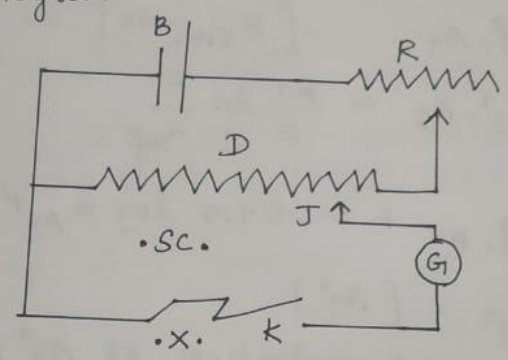 B
R
D
J
.SC.
G
.X.
K